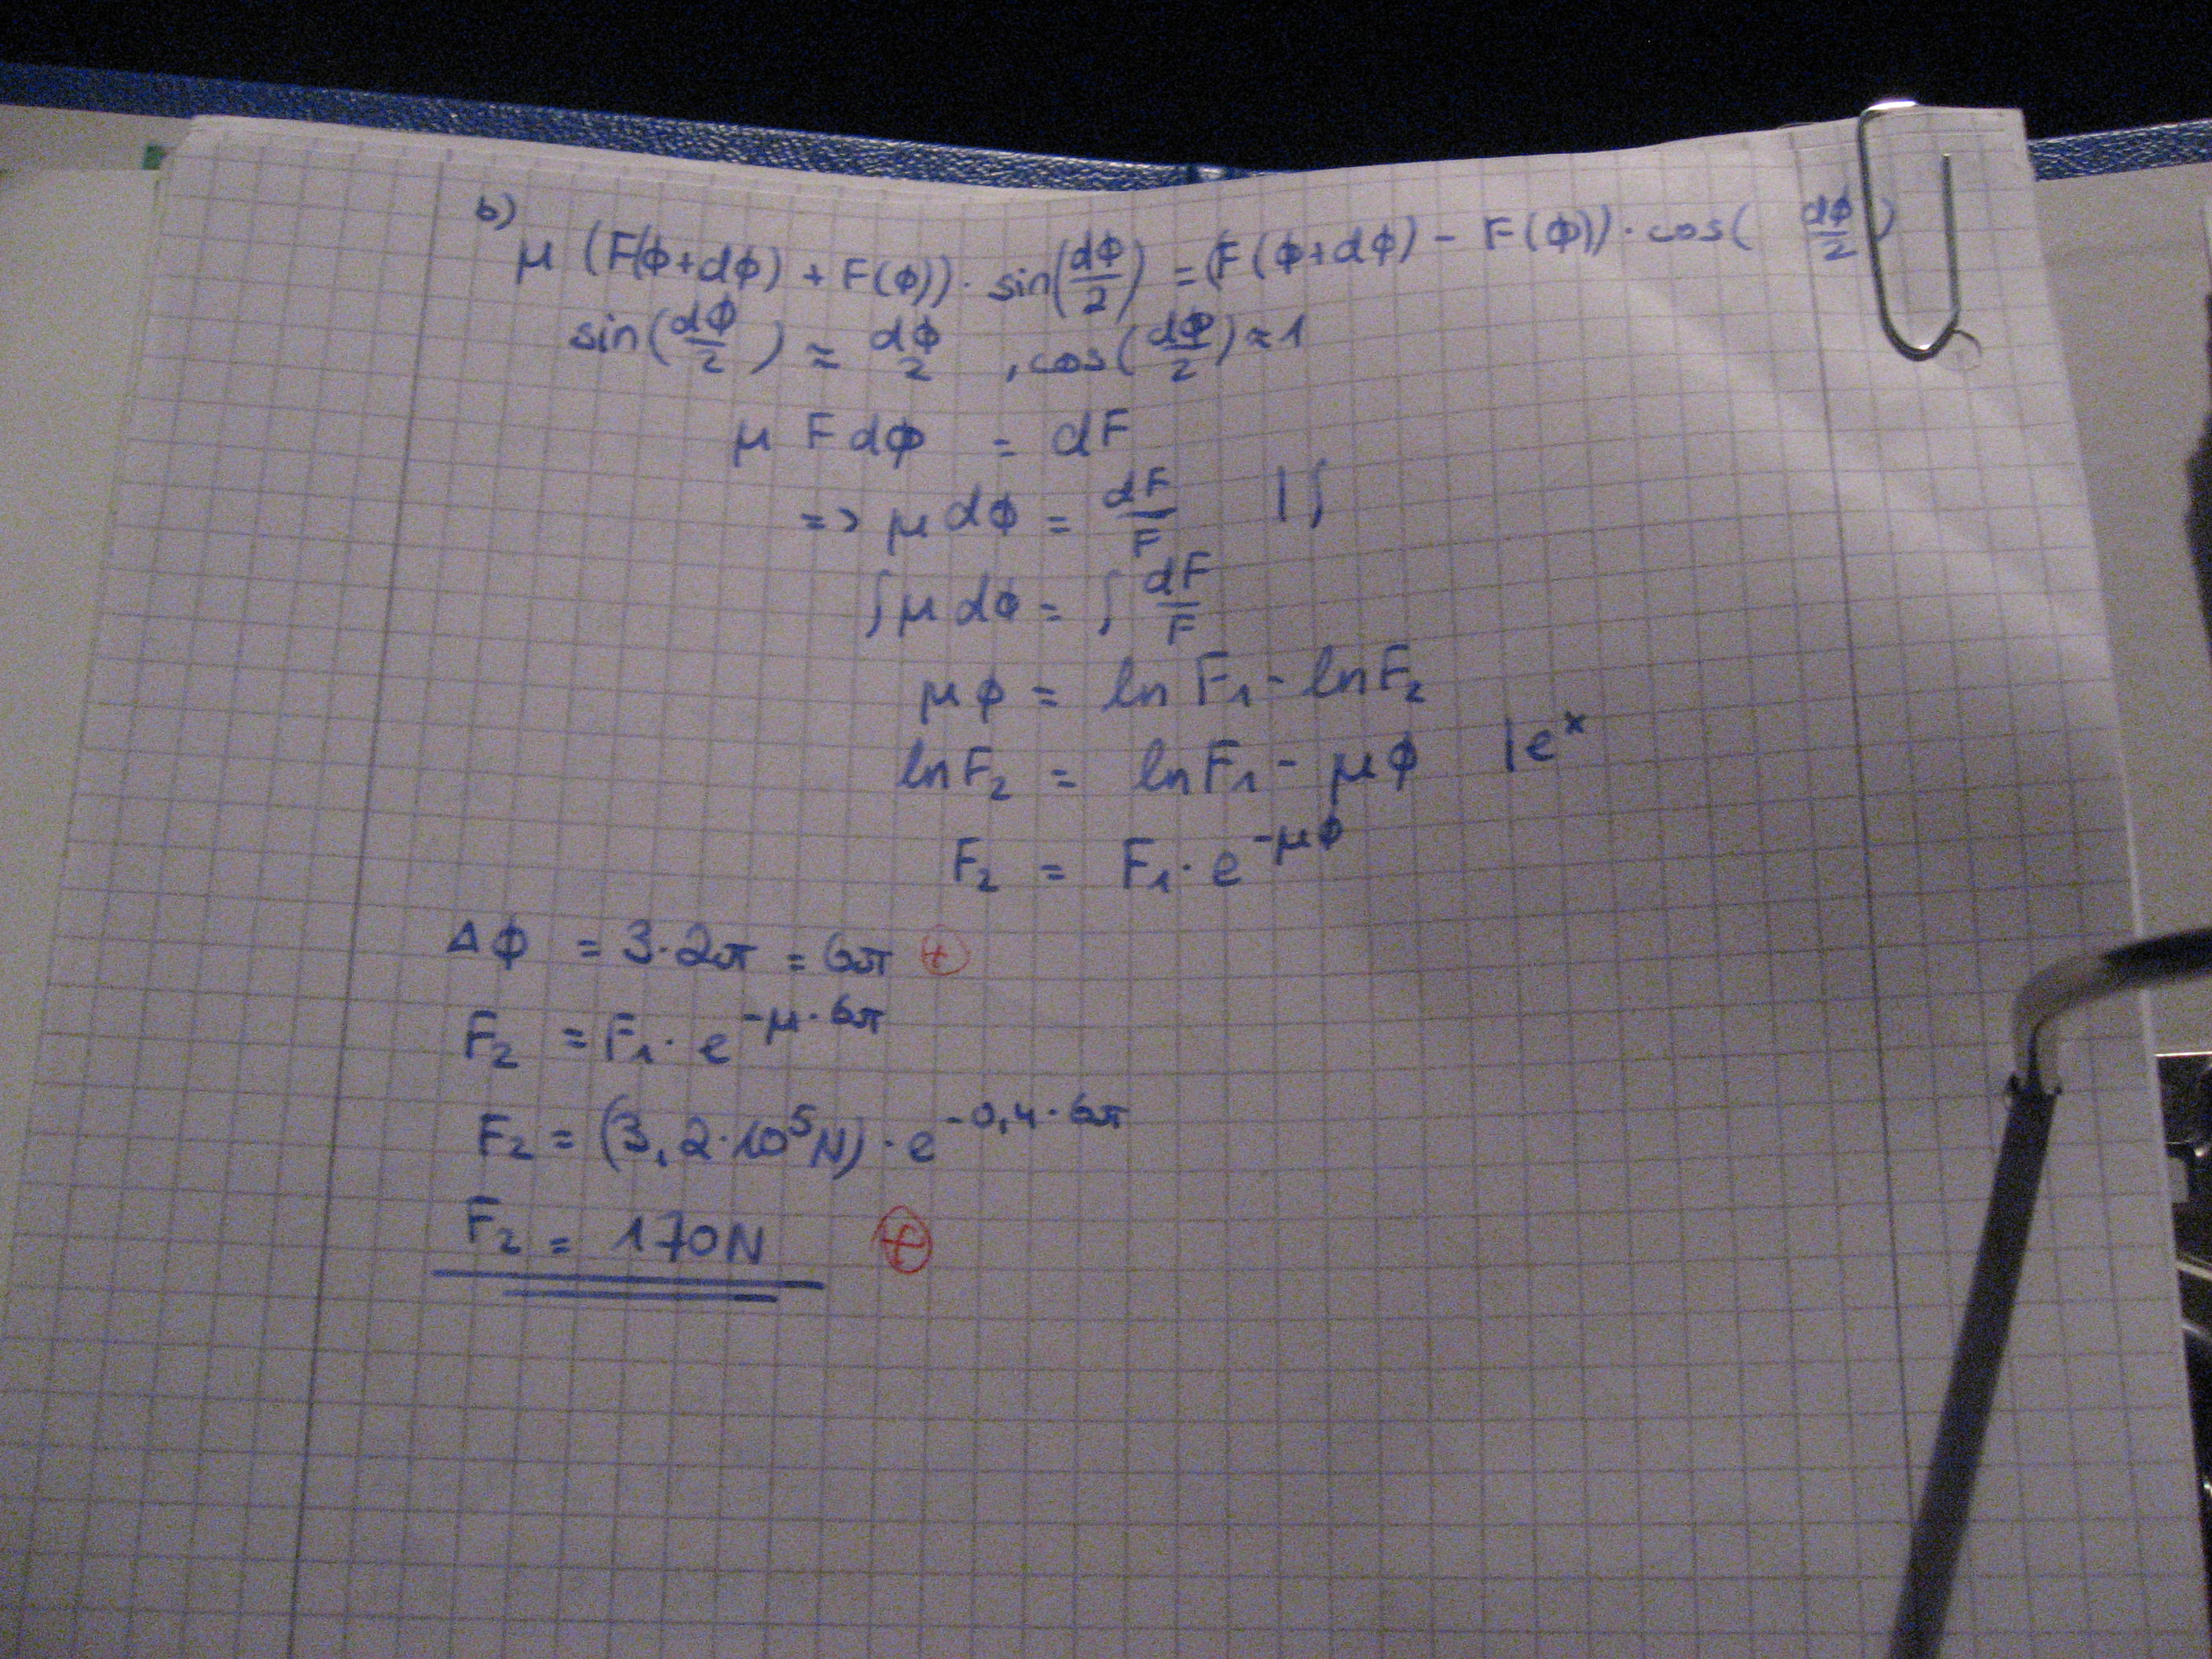 b)
μ (F(ϕ+dϕ) + F(ϕ)) · sin(dϕ/2) = (F(ϕ+dϕ) - F(ϕ)) · cos( dϕ/2 )
sin(dϕ/2) ≈ dϕ/2 , cos(dϕ/2) ≈ 1
μ F dϕ = dF
=> μ dϕ = dF/F | ∫
∫ μ dϕ = ∫ dF/F
μϕ = ln F₁ - ln F₂
ln F₂ = ln F₁ - μϕ | eˣ
F₂ = F₁ · e^-μϕ
Δϕ = 3·2π = 6π +
F₂ = F₁ · e^-μ·6π
F₂ = (3,2·10⁵N) · e^-0,4·6π
F₂ = 170N +